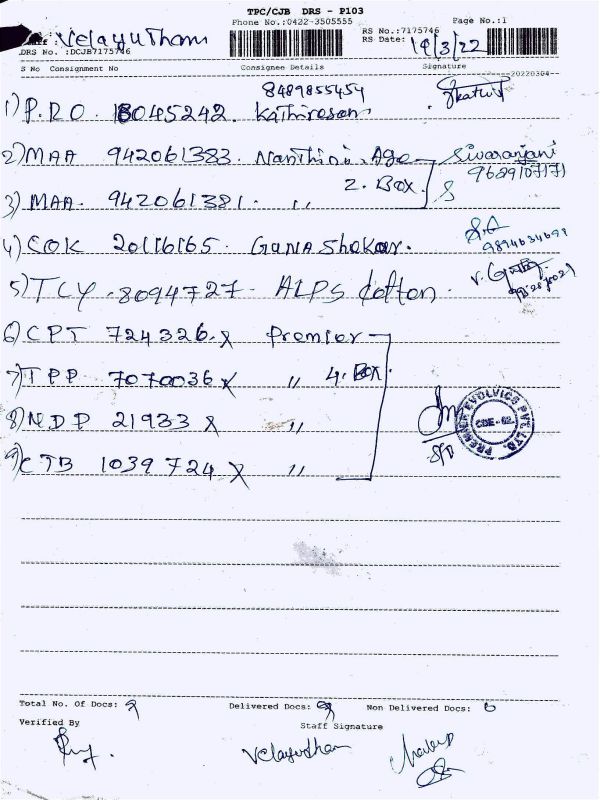 TPC/CJB DRS - P103
Phone No.:0422-3505555 Page No.:1
RS No.:7175746
Staff : Velayutham RS Date: 19/3/22
DRS No. :DCJB7175746
S No Consignment No Consignee Details Signature
20220304
8489855454
1) P.RO 18045242. Kathiresan
2) MAA 942061383. Nanthini. Age Sivaranjani
2. Box. 9629107171
3) MAA. 942061381. "
4) COK 20116165. Guna Shekar. 9894634699
5) TCY .8094727. ALPS Cotton.
6) CPT 724326.x Premier
7) TPP 7070036 x " 4. Box.
8) NDP 21933 x "
PREMIER EVOLVICS PVT LTD.
CBE-62.
9) CTB 1039724 x "
Total No. Of Docs: 9 Delivered Docs: 9 Non Delivered Docs: 0
Verified By Staff Signature
Velayutham